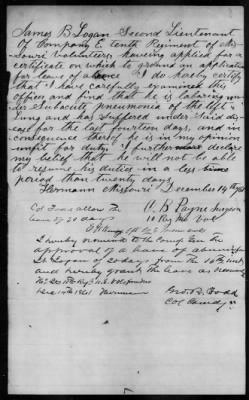 James B Logan Second Lieutenant
Of Company E tenth Regiment of Mis-
souri Volunteers, having applied for a
certificate on which to ground an application
for leave of absence I do hereby certify
that I have carefully examined this
officer and find that he is laboring
under Subacute pneumonia of the left
lung and has suffered under said dis-
ease for the last fourteen days, and in
consequence thereof he is in my opinion
unfit for duty. I further declare
my belief that he will not be able
to resume his duties in a less
period than twenty days.
Hermann Missouri December 14th 1861
Col Todd allow the
leave of 20 days
O. B. Payne Surgeon
10 Reg Mo Vol
I hereby the
approval of a leave of absence
Lt Logan of 20 days from the 10th inst
and hereby grant the leave as
Hd Qrs 10th Reg Mo Vol
Dec 14th 1861 Hermann
Geo. R. Todd
Col